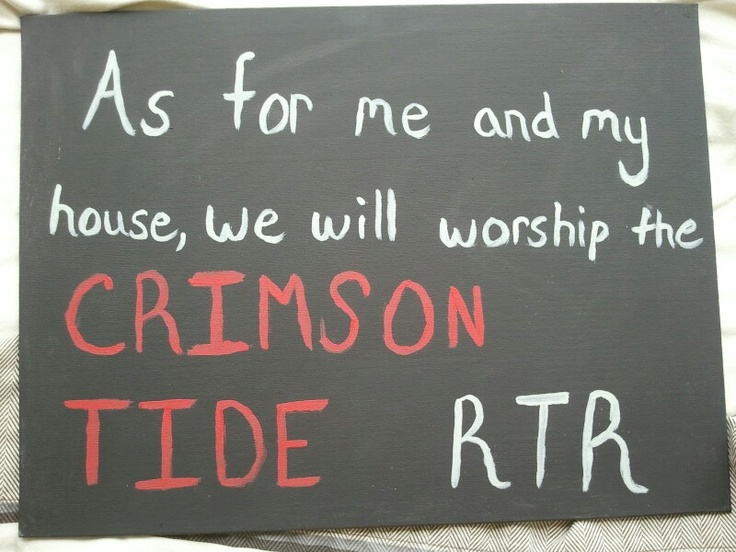 As for me and my
house, we will worship the
CRIMSON
TIDE RTR